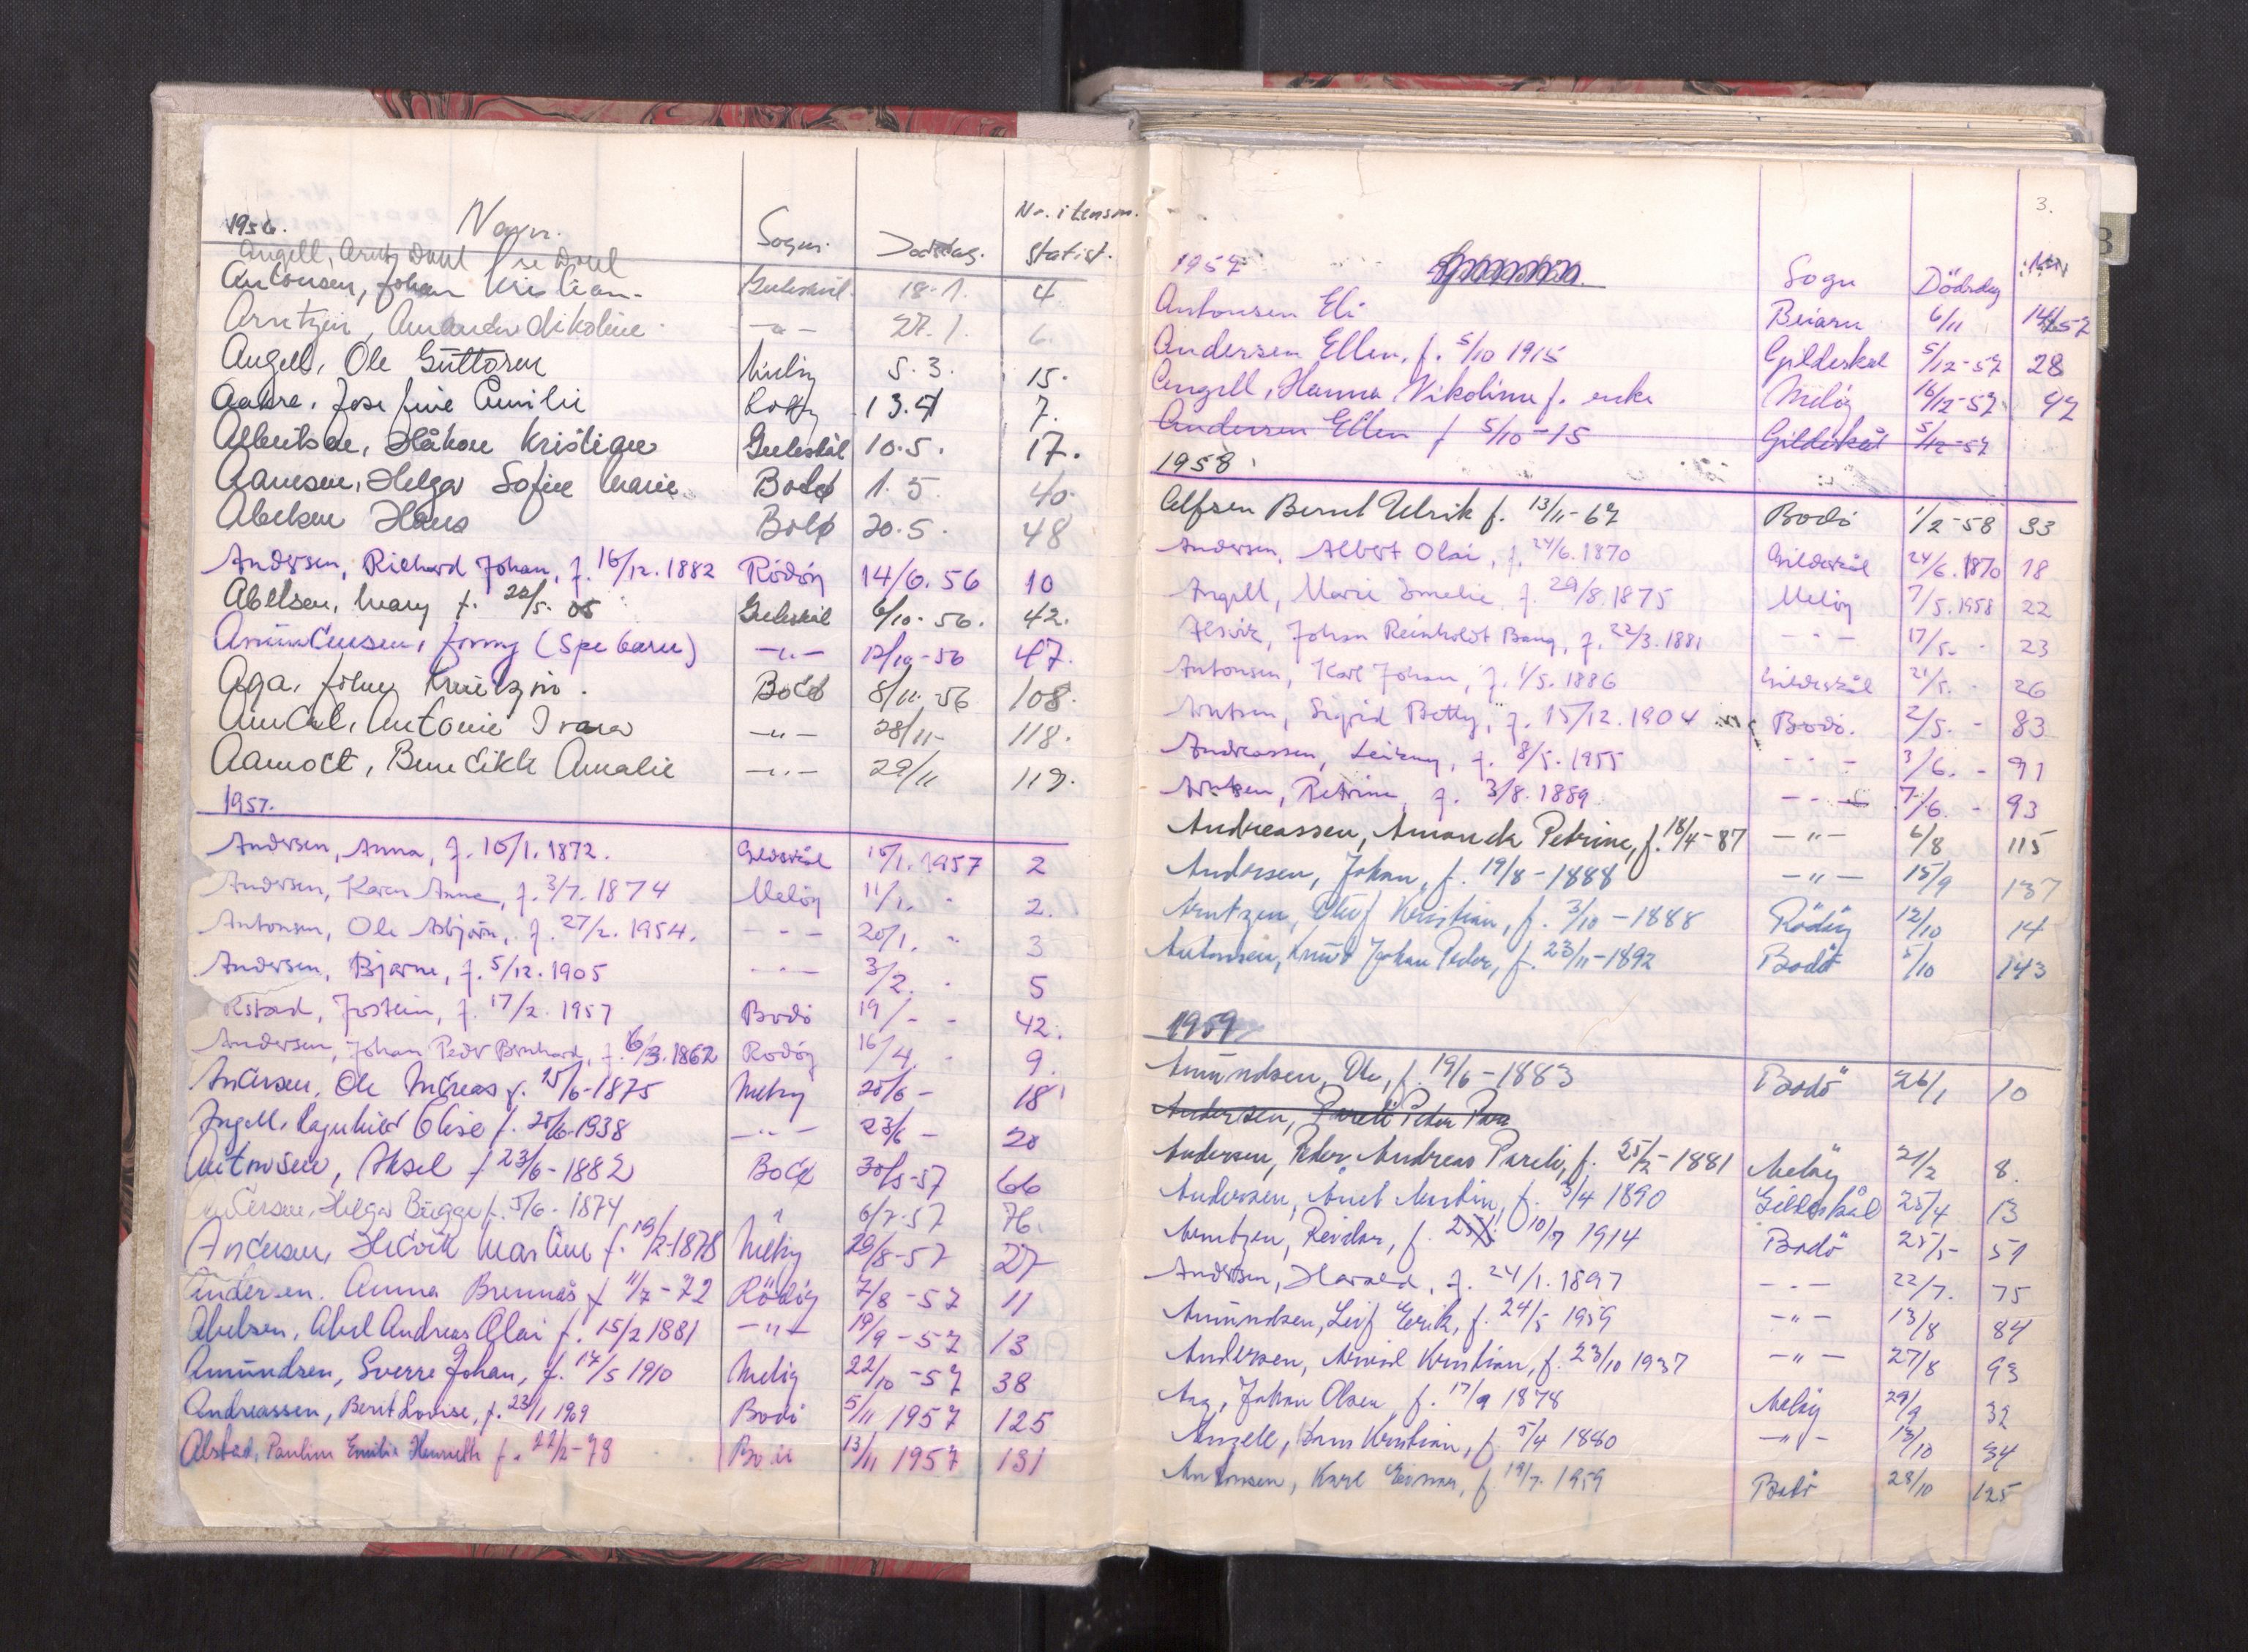 1956. Navn. Sogn. Dødsdag. Nr. i lensm. statist.
Angell, Arntz Dahl se Dahl
Antonsen, Johan Kristian. Gildeskål 18.1. 4.
Arntzen, Amanda Nikoline. -"- 27.1. 6.
Angell, Ole Guttorm Meløy 5.3. 15.
Aakre, Josefine Emilie 13.4 7.
Albertsen, Håkon Kristian Gildeskål 10.5. 17.
Aamsen, Helga Sofie Marie Bodø 1.5. 40.
Abelsen Hans Bodø 20.5. 48
Andersen, Richard Johan, f. 16/12.1882 Rödöy 14/6.56 10
Abelsen, Mary f. 05 Gildeskål 6/10-56. 42.
Amundsen, Jonny (Spebarn) -"- 12/10-56 47.
Aga, Johny Bodø 8/11-56 108.
Antonie Bodø -"- 28/11- 118.
Aamodt, Benedikte Amalie -"- 29/11 119.
1957.
Andersen, Anna, f. 15/1.1872. Gildeskål 15/1.1957 2
Andersen, Karen Anna, f. 3/7.1874 Melöy 11/1. " 2.
Antonsen, Ole Asbjörn, f. 27/2.1954. - " - 20/1. " 3
Andersen, Bjarne, f. 5/12.1905 - " - 3/2. " 5
Jostein, f. 17/2.1957 Bodö 19/- - 42.
Andersen, Johan Peder Bernhard, f. 6/3.1862 Rödöy 16/4. " 9.
Andersen, Ole Andreas f. 25/6-1875 Meløy 20/6 - 18
Angell, Ragnhild Elise f. 1938 -"- 23/6 - 20
Antonsen, Aksel f 23/6-1882 Bodø 57 66
Andersen, Helga Bugge f. 5/6-1874 " 6/7-57 76.
Andersen, Hedvik Martine f. 19/2-1878 Meløy 29/8-57 27
Andersen. Anna Brennås f 11/7-72 Rödöy 7/8-57 11
Abelsen, Abel Andreas Olai f. 15/2 1881 -"- 19/9-57 13
Amundsen, Sverre Johan, f. 17/5 1910 Melöy 22/10-57 38
Andreassen, Berit Lovise, f. 23/1 1909 Bodö 5/11 1957 125
Alstad, Pauline Emilie f. 22/2-78 Bodö 13/11 1957 131
3.
1957 Sogn Dödsdag Nr.
Antonsen Eli Beiarn 6/11
Andersen Ellen, f. 5/10 1915 Gildeskål 5/12-57 28
Angell, Hanna Nikoline f. enke Melöy 16/12-57 47
Andersen Ellen f 5/10-15 Gildeskål 5/12-57
1958
Alfsen Bernt Ulrik f. 13/11-67 Bodö 1/2-58 33
Andersen, Albert Olai, f. 24/6.1870 Gildeskål 24/6.1870 18
Angell, Marie Emelie, f. 29/8.1875 Melöy 7/5.1958 22
Alsvik, Johan Reinholdt Bang, f. 22/3.1881 - " - 17/5. " 23
Antonsen, Karl Johan, f. 1/5.1886 Gildeskål 21/5. " 26
Arntsen, Sigrid Betty, f. 15/12.1904 Bodö. 2/5. - 83
Andreassen, f. 8/5.1955 - " - 3/6. - 91
Arntsen, Petrine, f. 3/8.1889 - " - 7/6. - 93
Andreassen, Amanda Petrine, f. 18/4-87 -"- 6/8 115
Andersen, Johan, f. 19/8-1888 -"- 15/9 137
Arntzen, Oluf Kristian, f. 3/10-1888 Rödöy 12/10 14
Antonsen, Knut Johan Peder, f. 23/11-1892 Bodö 5/10 143
1959
Amundsen, Ole, f. 19/6-1883 Bodö 26/1 10
Andersen, Pareli Peder
Andersen, Peder Andreas Pareli, f. 25/2-1881 Melöy 21/2 8.
Andersen, Martin, f. 3/4 1890 Gildeskål 25/4 13
Arntzen, Reidar, f. 10/7 1914 Bodö 25/5- 51
Andersen, Harald, f. 24/1.1897 - " - 22/7. 75
Amundsen, Leif Erik, f. 24/5 1959 -"- 13/8 84
Andersen, Arvid Kristian, f. 23/10 1937 -"- 27/8 93
Aag, Johan Olsen, f. 17/9 1878 Melöy 29/9 32
Angell, Kristian, f. 5/4 1880 -"- 13/10 34
Antonsen, Karl Einar, f 19/7. 1959 Bodö 28/10 125